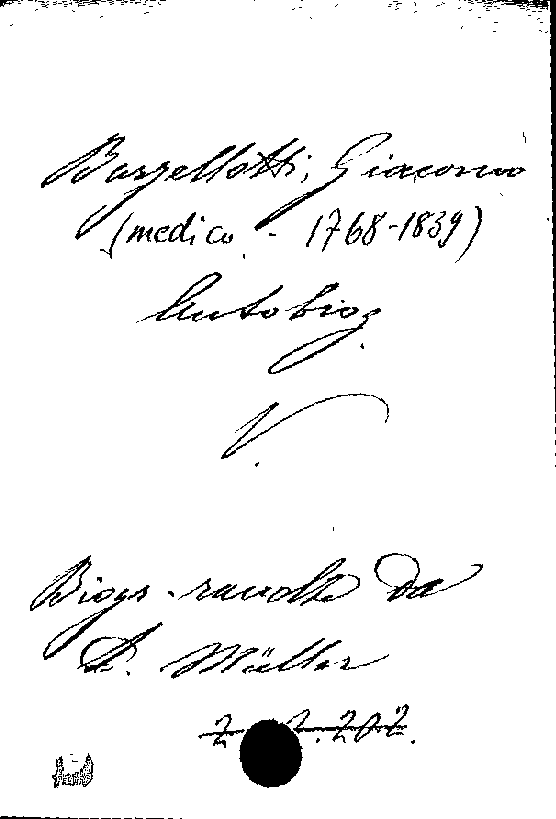 Barzellotti, Giacomo
(medico - 1768-1839)
Autobiog.
V.
Biogr. raccolte da
D. Müller